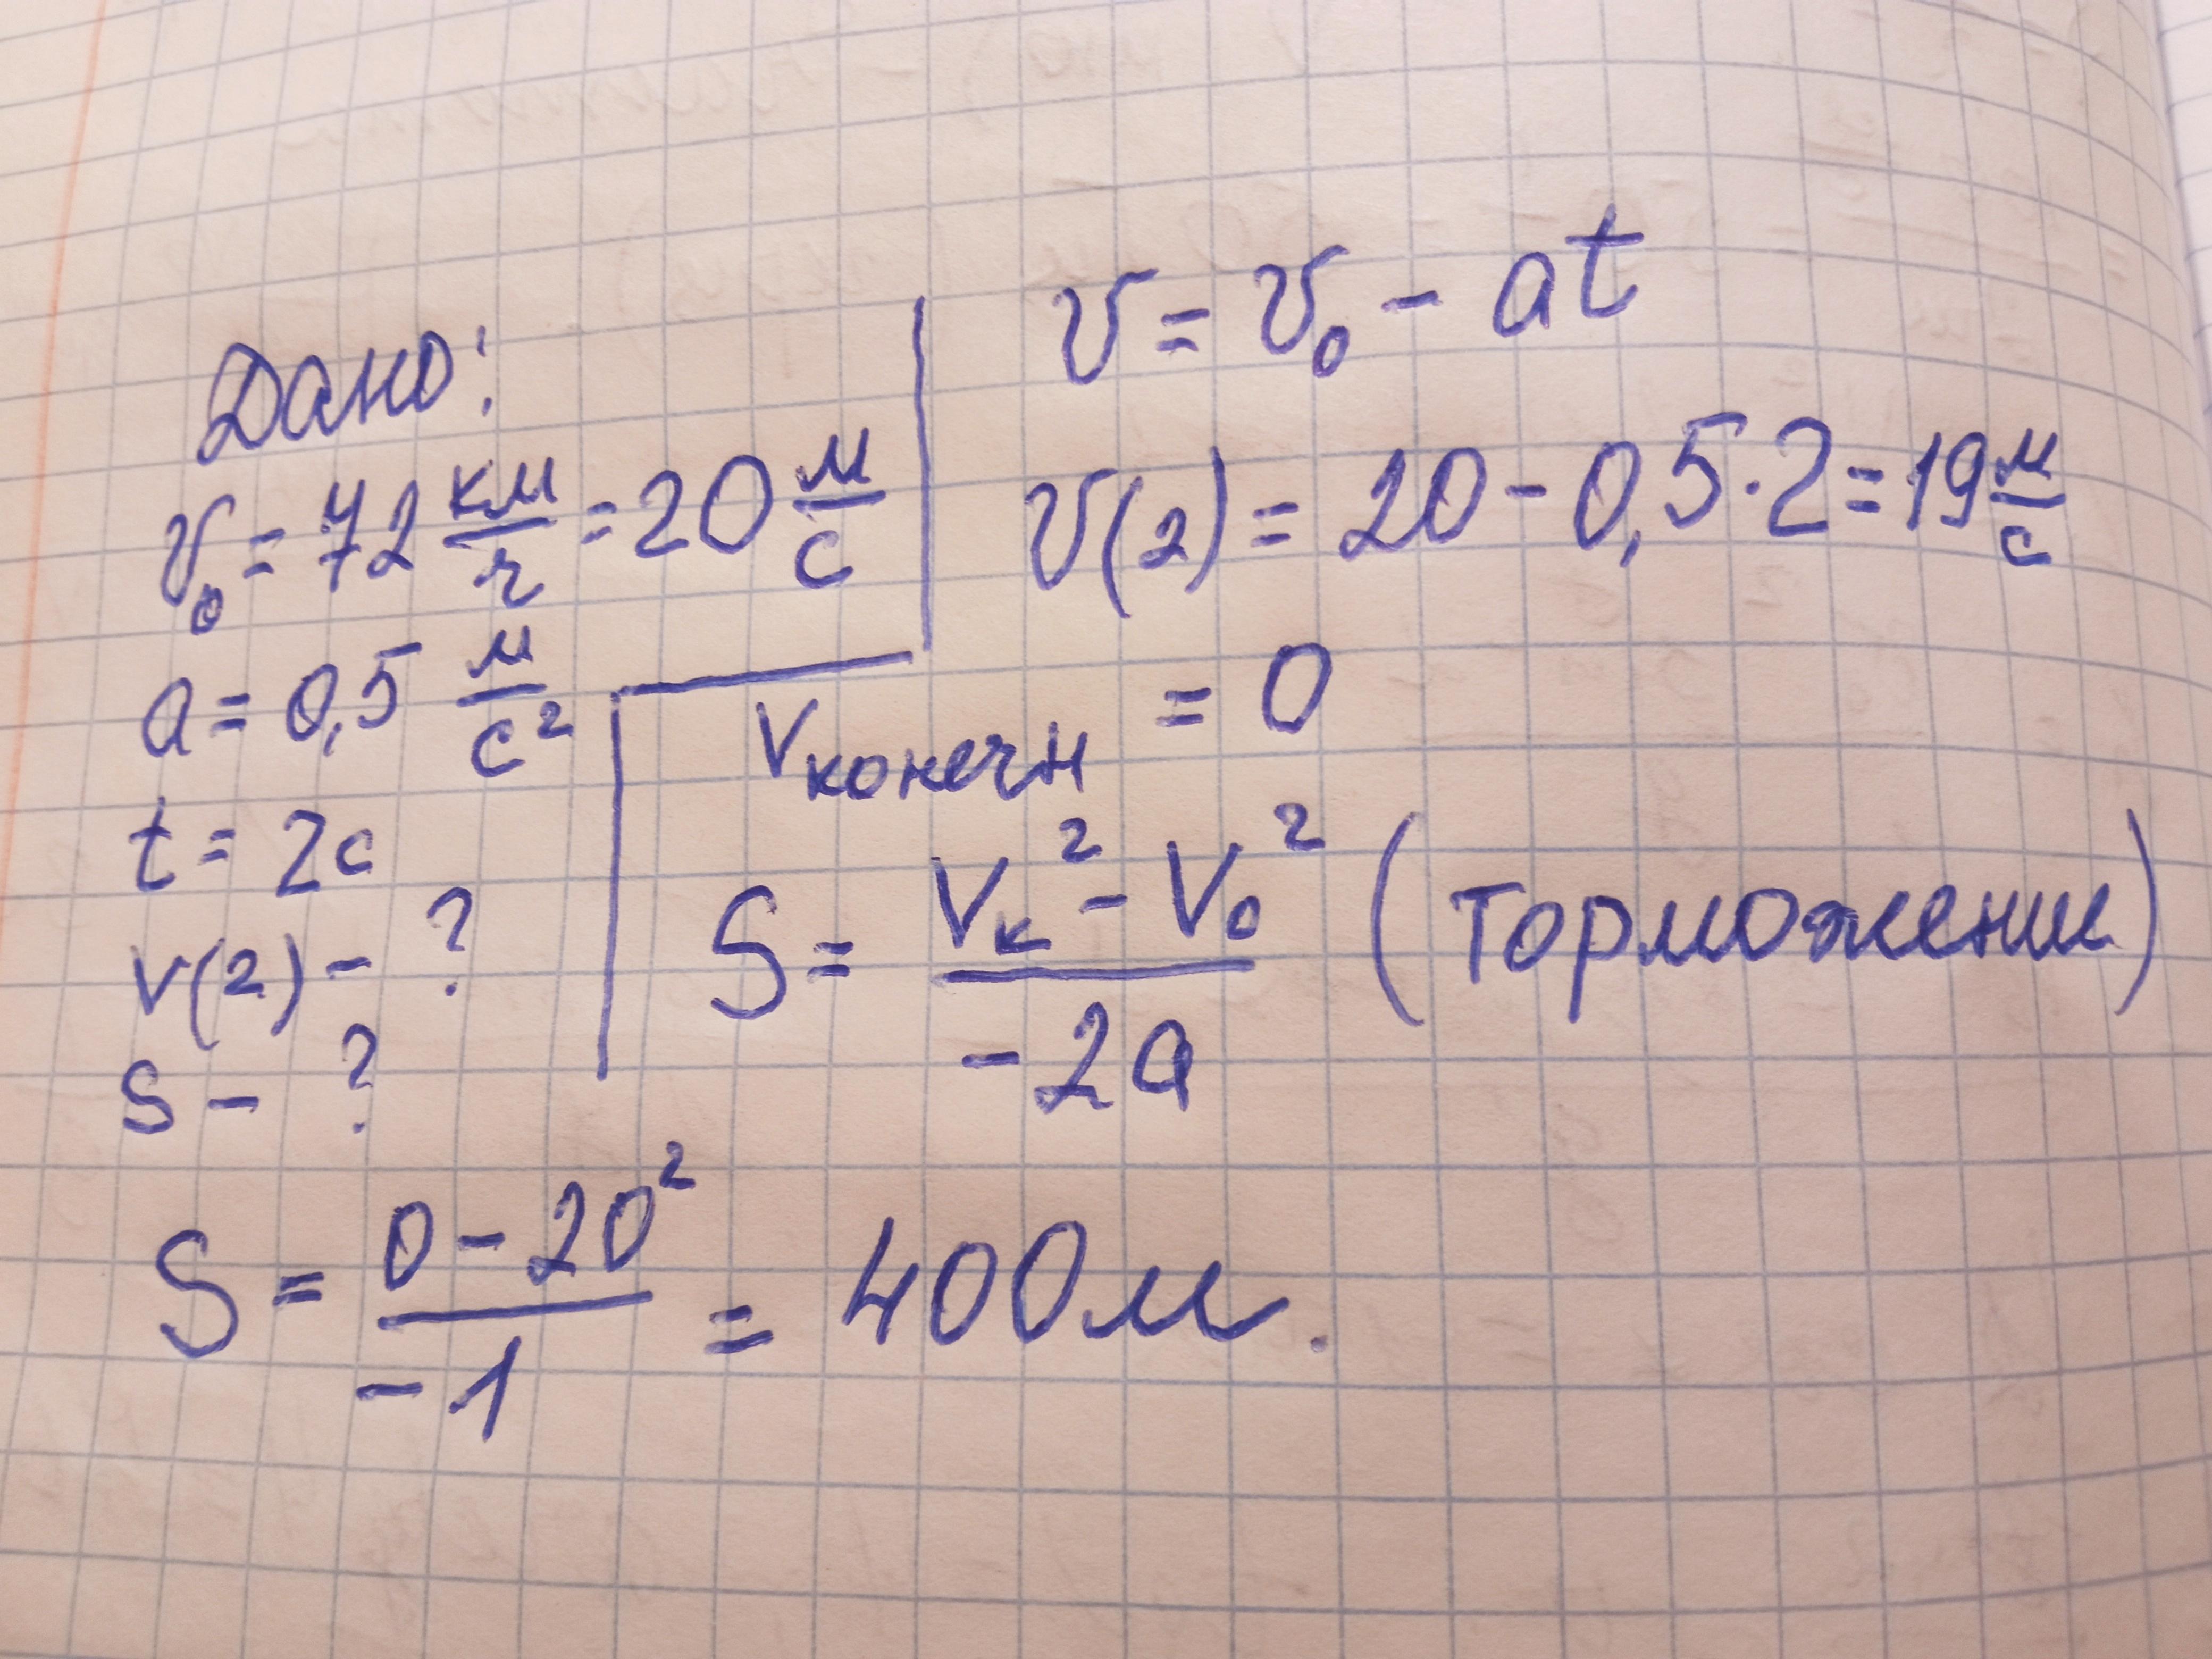 Дано:
v₀ = 72 км/г = 20 м/с
a = 0,5 м/с²
t = 2с
v(2) - ?
S - ?
v = v₀ - at
v(2) = 20 - 0,5·2 = 19 м/с
Vконечн = 0
S = (Vк² - V₀²)/(-2a) (торможении)
S = (0 - 20²)/(-1) = 400м.